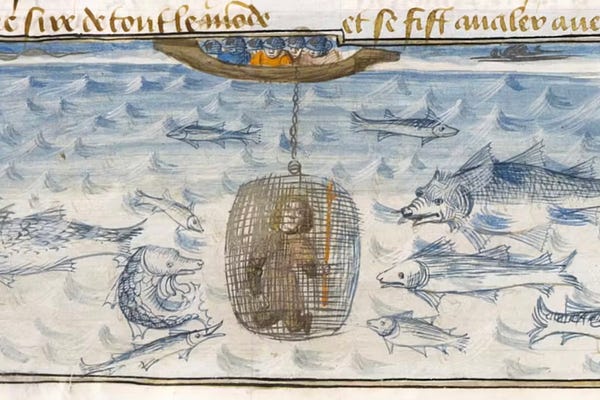 sire de tout le mõde et se fist avaler